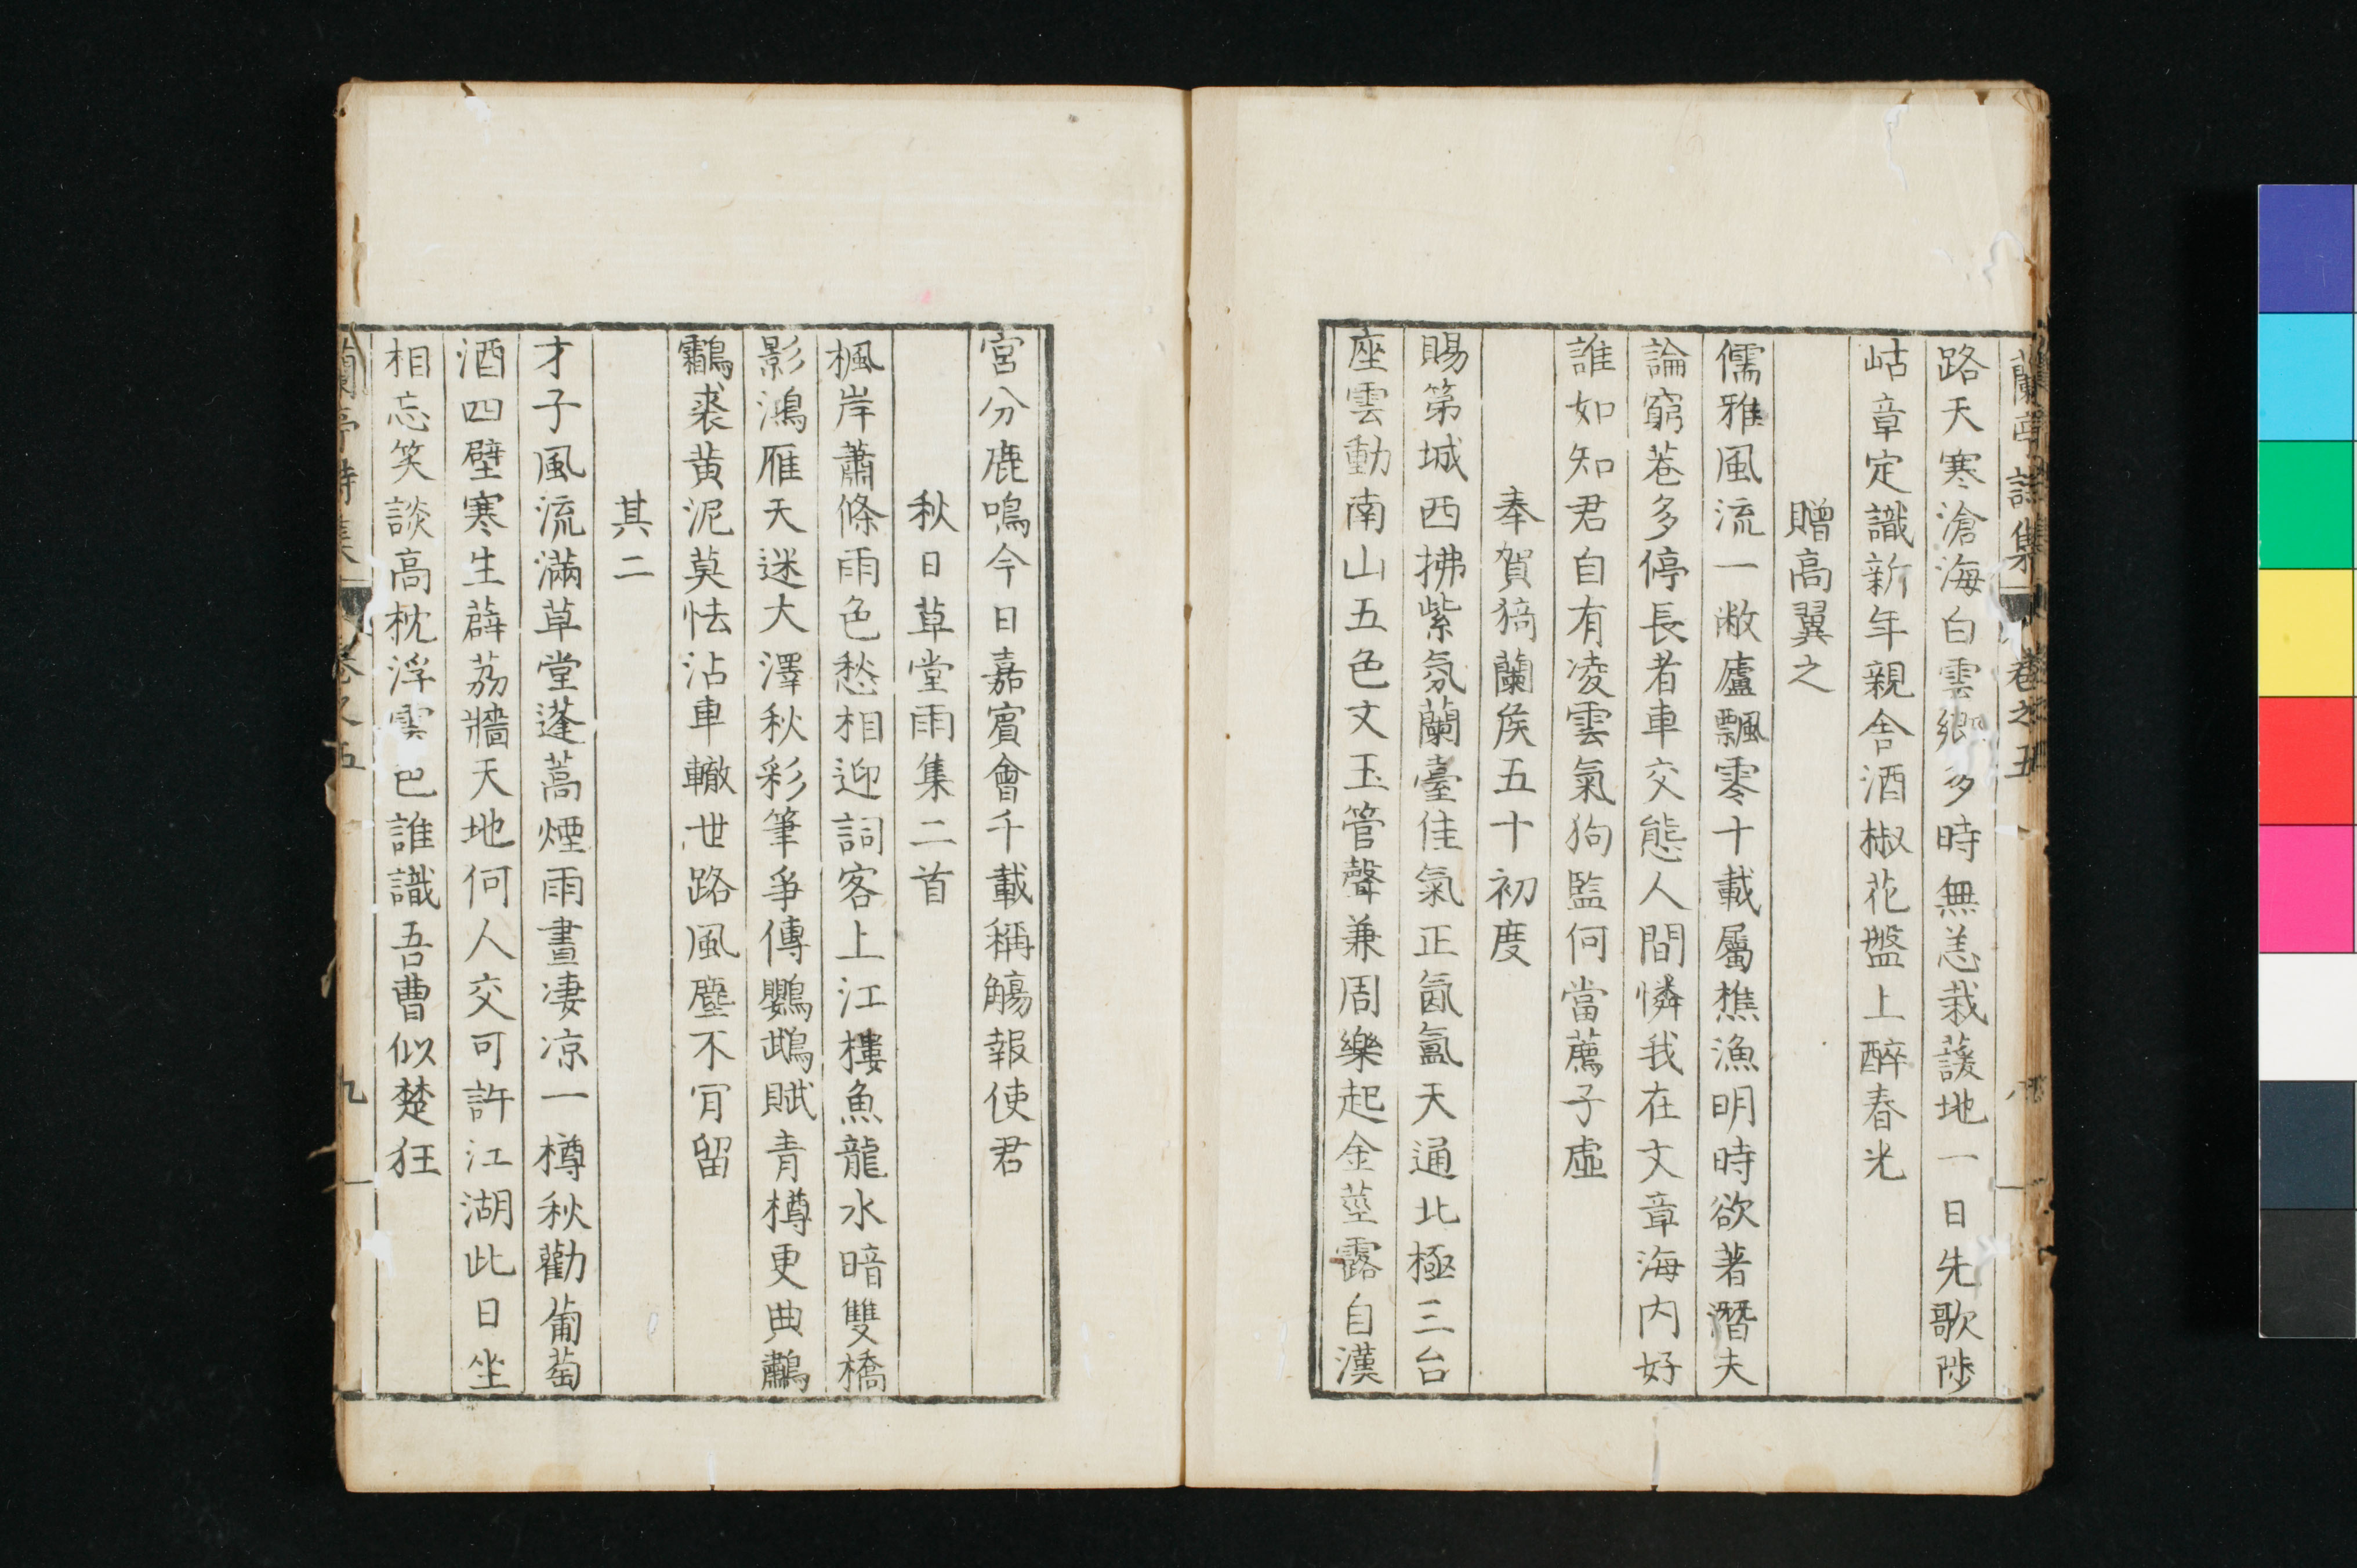 蘭亭詩集 卷之五 八
路天寒滄海白雲鄉多時無恙栽蘐地一日先歌陟
岵章定識新年親舍酒椒花盤上醉春光
贈高翼之
儒雅風流一敝廬飄零十載屬樵漁明時欲著潛夫
論窮巷多停長者車交態人間憐我在文章海內好
誰如知君自有凌雲氣狗監何當薦子虛
奉賀猗蘭侯五十初度
賜第城西拂紫氛蘭臺佳氣正氤氳天通北極三台
座雲動南山五色文玉管聲兼周樂起金莖露自漢
宮分鹿鳴今日嘉賓會千載稱觴報使君
秋日草堂雨集二首
楓岸蕭條雨色愁相迎詞客上江樓魚龍水暗雙橋
影鴻雁天迷大澤秋彩筆爭傳鸚鵡賦青樽更典鷫
鸘裘黃泥莫怯沾車轍世路風塵不肎留
其二
才子風流滿草堂蓬蒿煙雨晝凄凉一樽秋勸葡萄
酒四壁寒生薜荔牆天地何人交可許江湖此日坐
相忘笑談高枕浮雲色誰識吾曹似楚狂
蘭亭詩集 卷之五 九